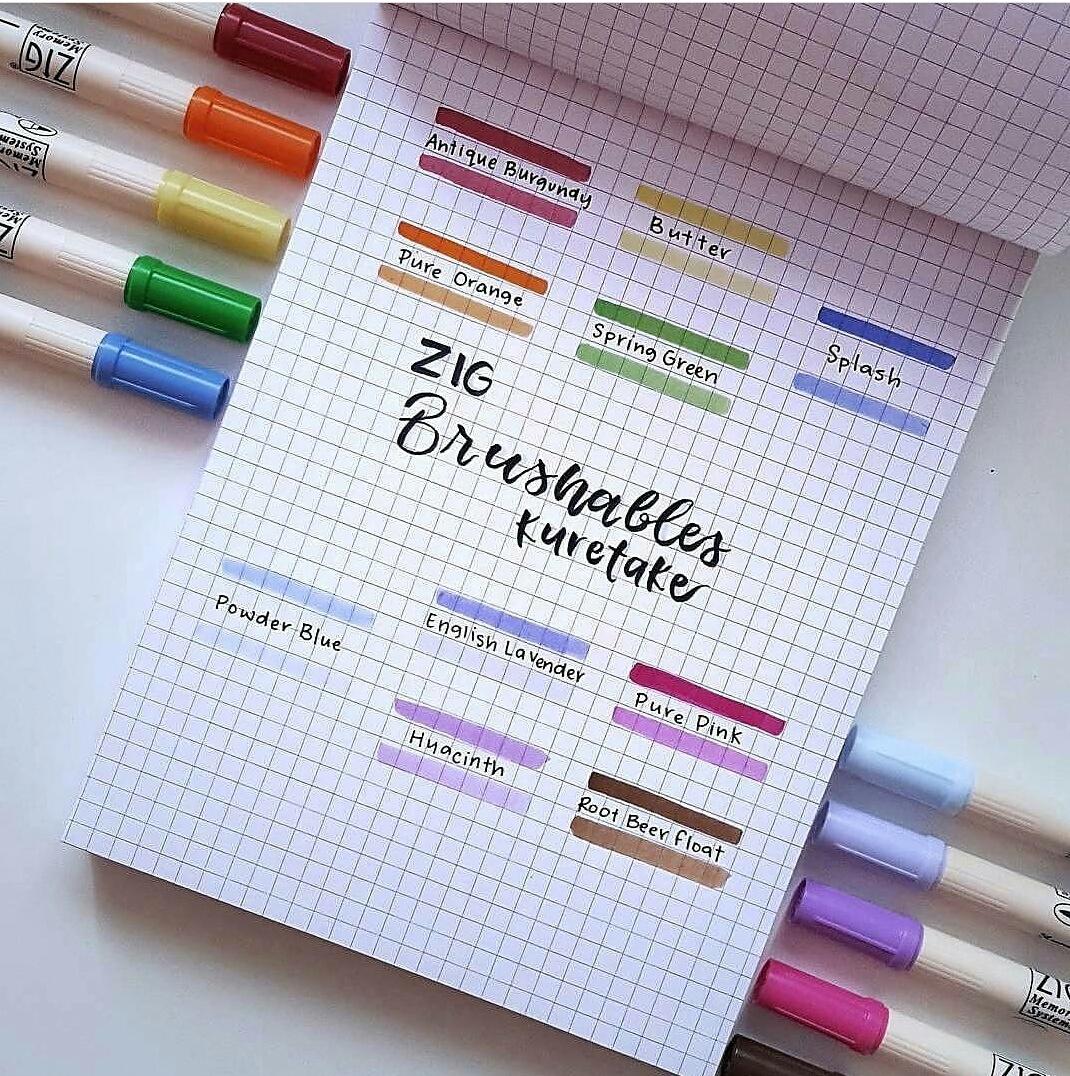 ZIG
Memory
ZIG
Memory
System
ZIG
Antique Burgundy
Butter
Pure Orange
Spring Green
Splash
ZIG
Brushables
Kuretake
Powder Blue
English Lavender
Pure Pink
Hyacinth
Root Beer float
ZIG
Memory
System
ZIG